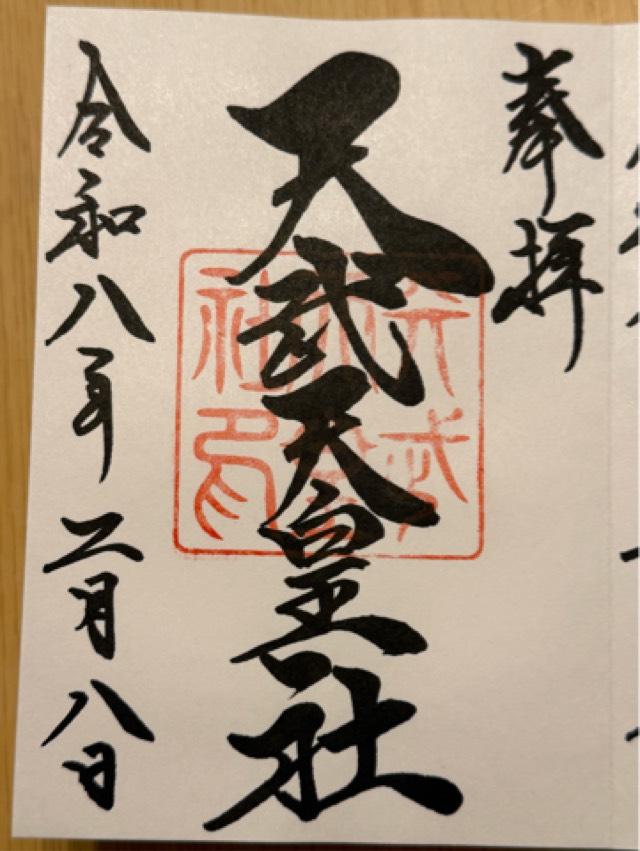 奉拝
天武天皇社
天武天皇社印
令和八年二月八日